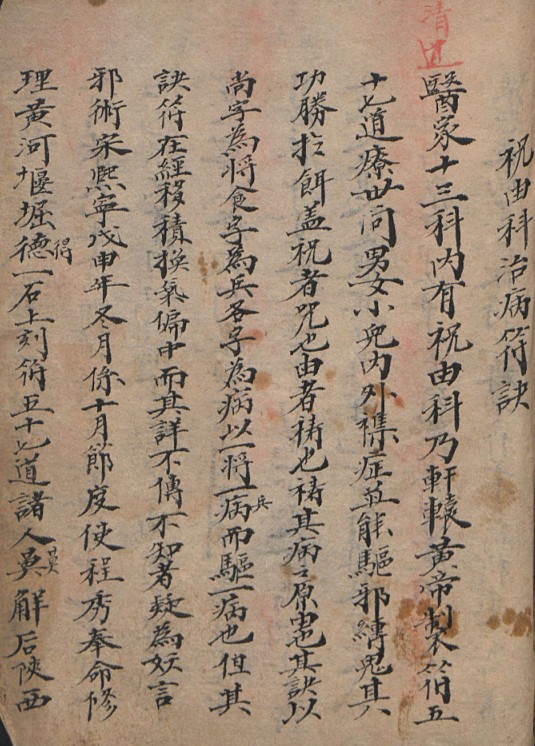 清
祝由科治病符訣
醫家十三科內有祝由科乃軒轅黃帝製符五
十七道療世间男女小兒內外襍症並能驅邪縛鬼其
功勝於餌蓋祝者咒也由者禱也禱其病之原由也其訣以
尚字為將食字為兵各字為病以一將一病兵而驅一病也但其
訣符在經移積換氣偏中而其詳不傳不知者疑為妖言
邪術宋熙寧戊申年冬月係十月節度使程秀奉命修
理黃河堰堀德得一石上刻符五十七道諸人莫莫解后陝西